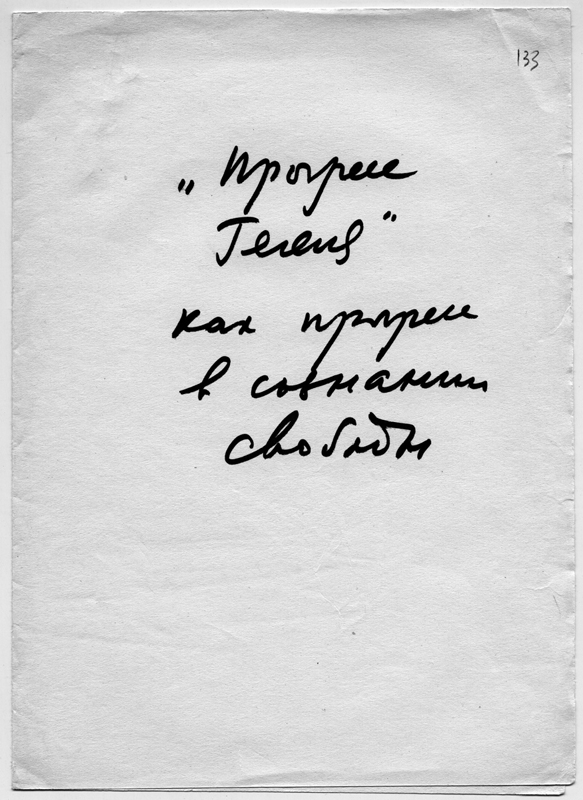 133
„Прогресс
Гегеля"
как прогресс
в сознании
свободы